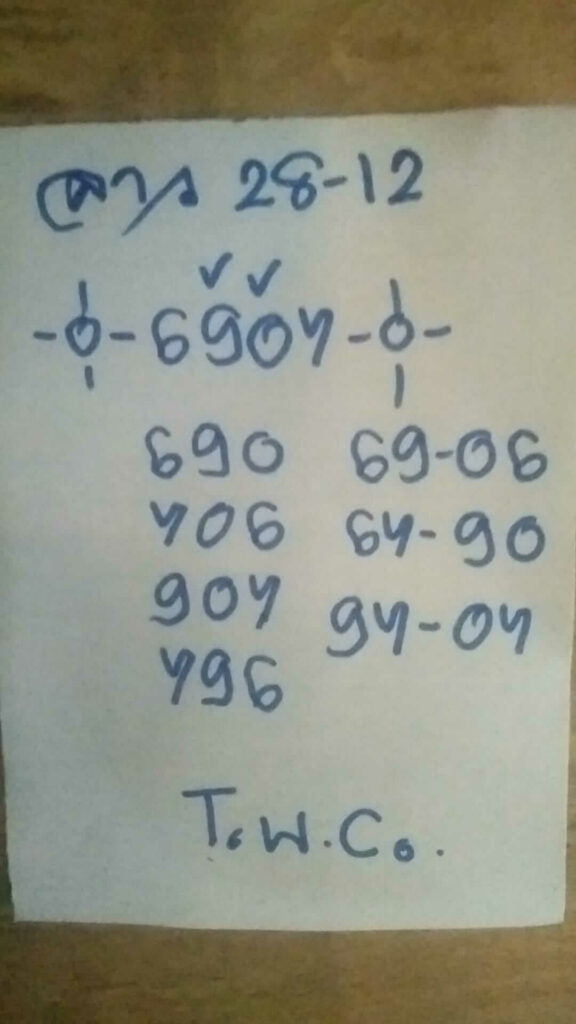 ลาว 28-12
✓ ✓
-0- 6904 -0-
690 69-06
406 64-90
904 94-04
496
T.W.Co.